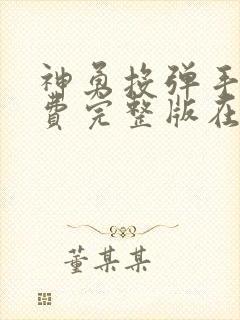 神勇投弹手
费完整版在
董某某